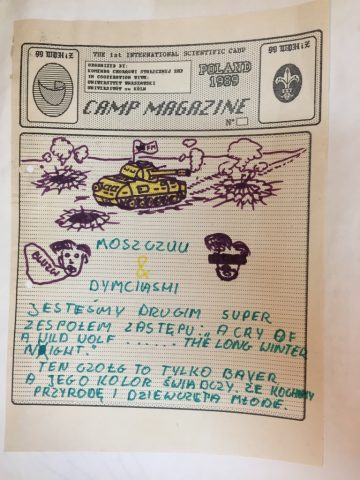 THE 1st INTERNATIONAL SCIENTIFIC CAMP
ORGANIZED BY:
KOMENDA CHORĄGWI STOŁECZNEJ ZHP
IN COOPERATION WITH:
UNIWERSYTET WARSZAWSKI
UNIVERSITÄT zu KÖLN
POLAND
1989
CAMP MAGAZINE
Nº
MOSZCZUU
&
DYMCIASHI
JESTEŚMY DRUGIM SUPER
ZESPOŁEM ZASTĘPU: „A CRY OF
A WILD WOLF ...... THE LONG WINTER
NIGHT."
TEN CZOŁG TO TYLKO BAYER
A JEGO KOLOR ŚWIADCZY, ŻE KOCHAMY
PRZYRODĘ I DZIEWCZĘTA MŁODE.